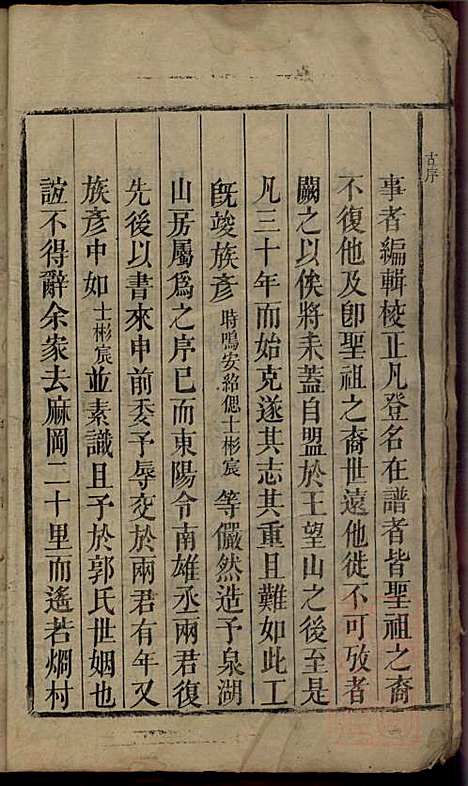 古序
事者編輯校正凡登名在譜者皆聖祖之裔
不復他及卽聖祖之裔世遠他徙不可攷者
闕之以俟將來蓋自盟於王望山之後至是
凡三十年而始克遂其志其重且難如此工
旣竣族彥時鳴安紹偲士彬宸等儼然造予泉湖
山房屬爲之序已而東陽令南雄丞兩君復
先後以書來申前委予辱交於兩君有年又
族彥中如士彬宸並素識且予於郭氏世姻也
誼不得辭余家去麻岡二十里而遙若燗村